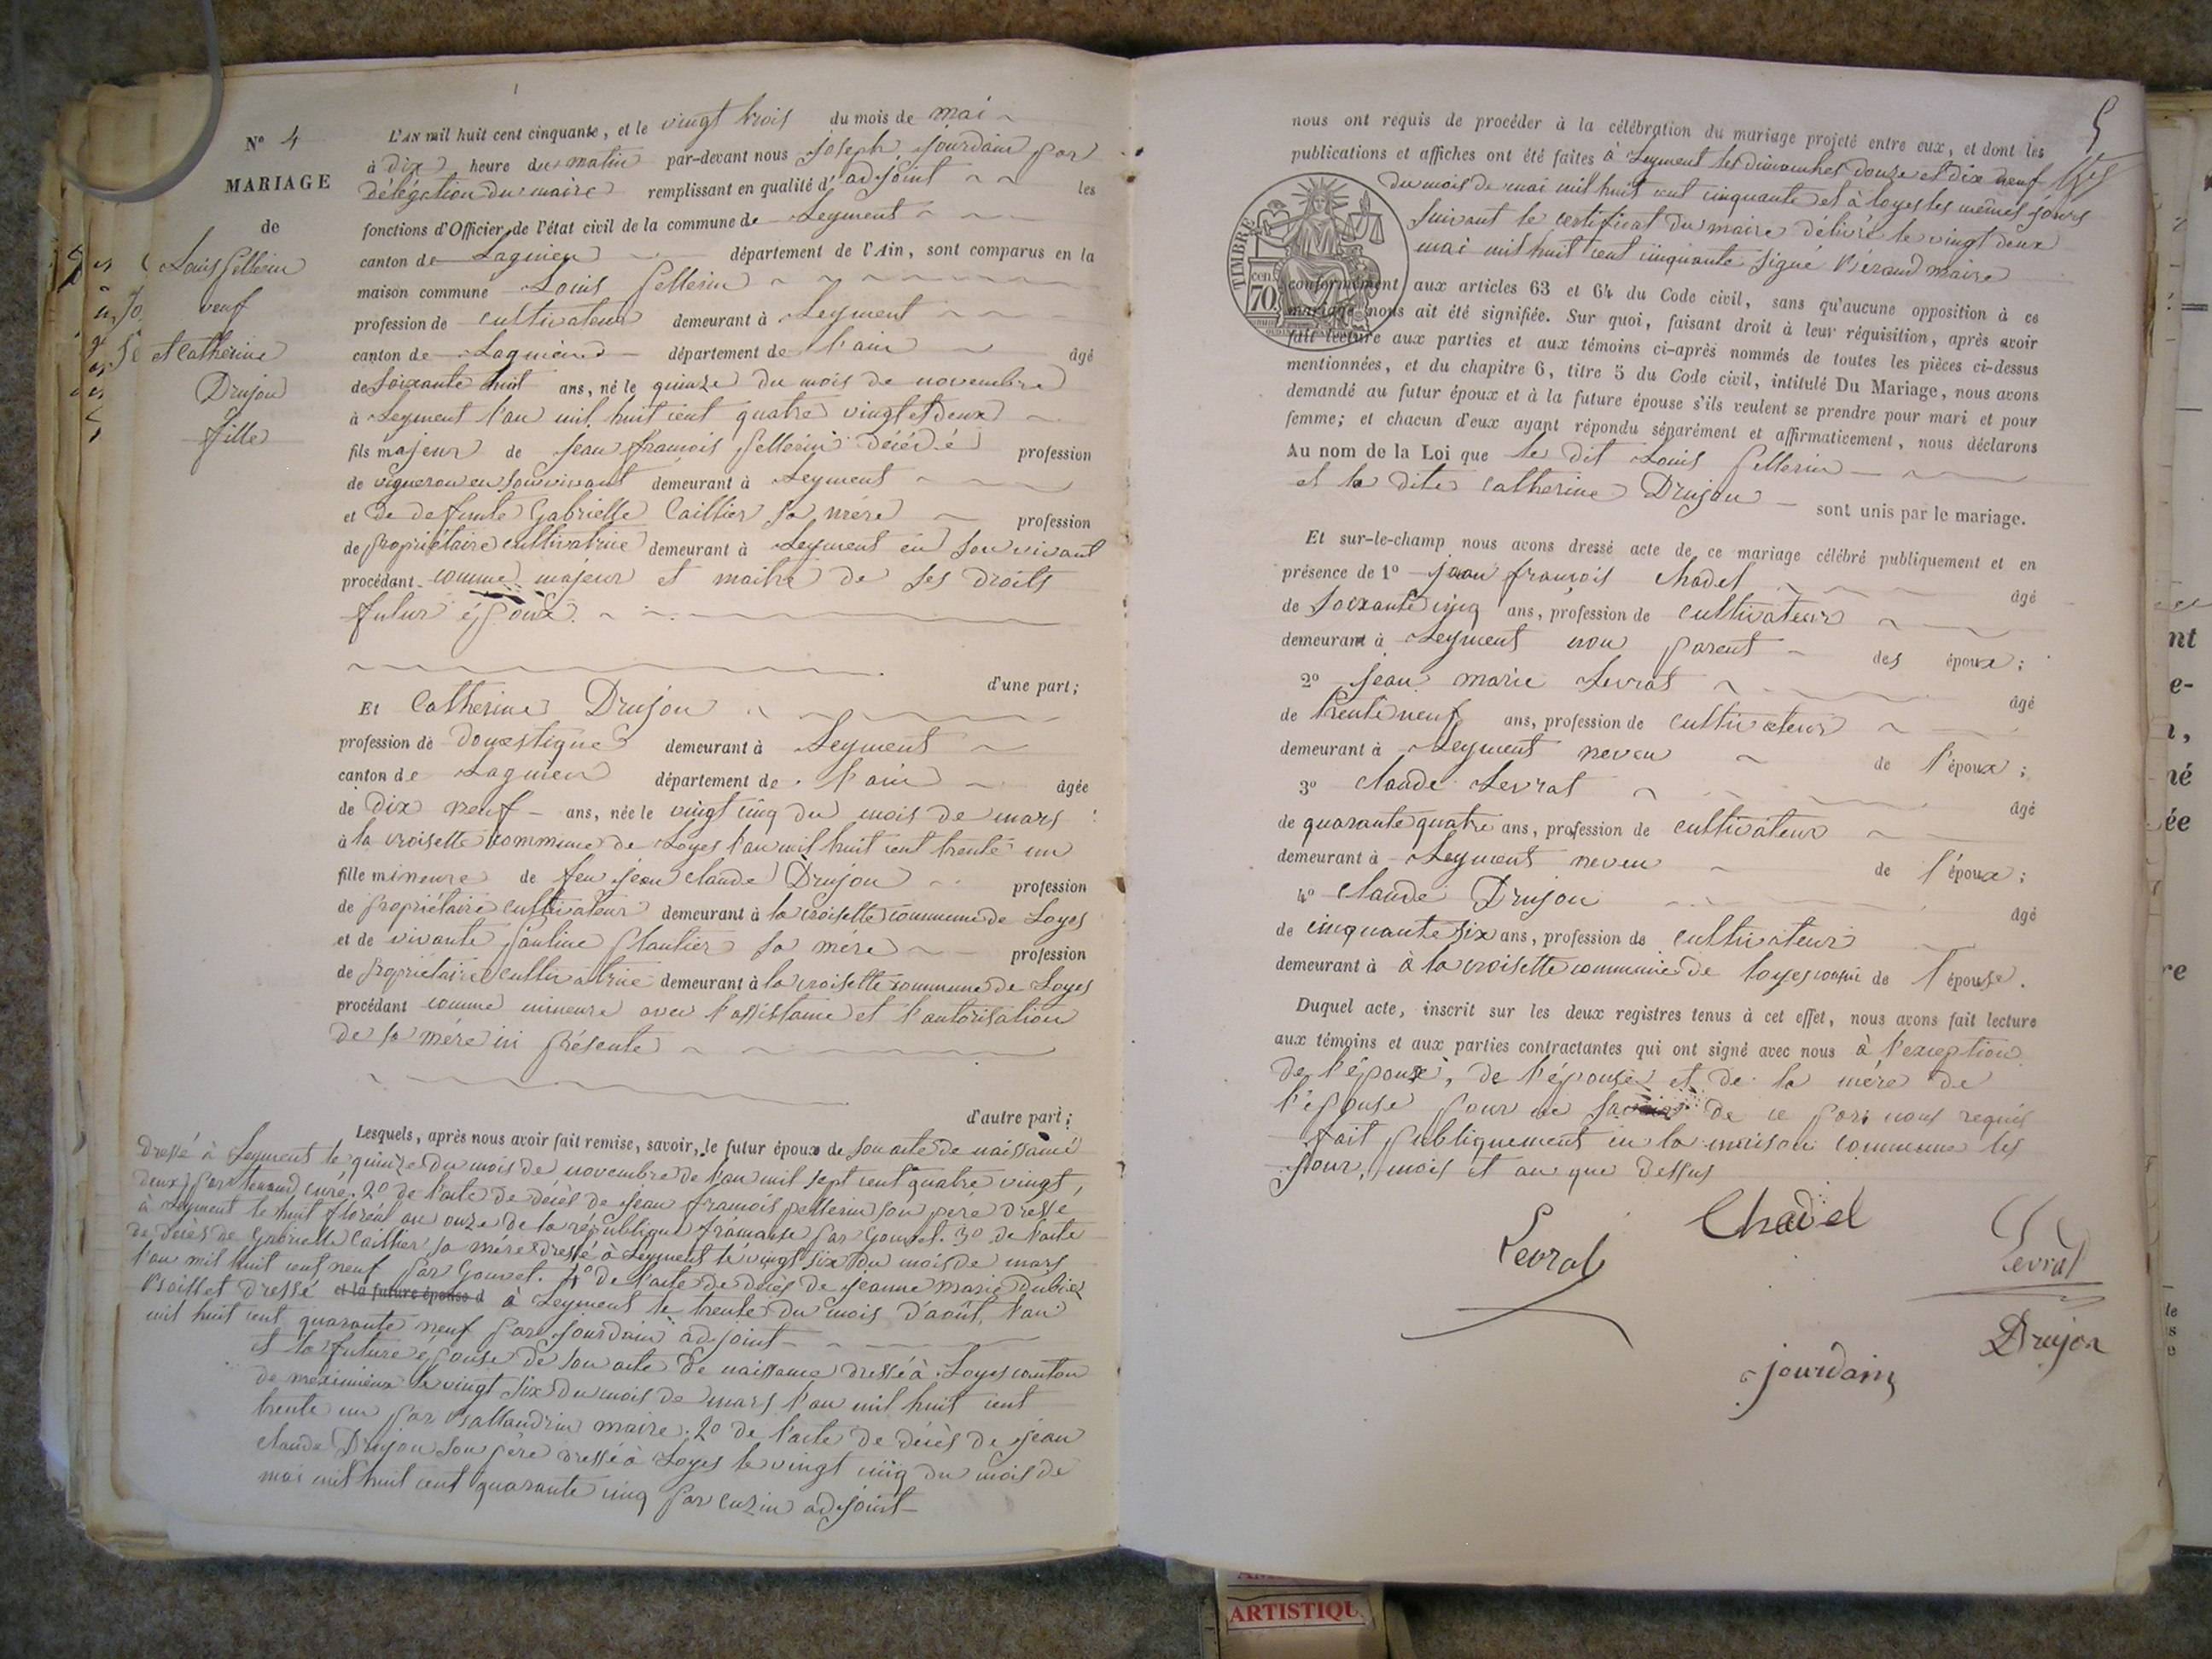 N° 4
MARIAGE
de
Louis Pellerin
veuf
et Catherine
Drujon
fille
L'AN mil huit cent cinquante, et le vingt trois du mois de mai
à dix heure du matin par-devant nous joseph jourdain par
délégation du maire remplissant en qualité d'adjoint les
fonctions d'Officier de l'état civil de la commune de Leyment
canton de Lagnieu département de l'Ain, sont comparus en la
maison commune Louis Pellerin
profession de cultivateur demeurant à Leyment
canton de Lagnieu département de l'ain âgé
de soixante huit ans, né le quinze du mois de novembre
à Leyment l'an mil huit cent quatre vingt et deux
fils majeur de jean françois pellerin décédé profession
de vigneron en son vivant demeurant à Leyment
et de defunte Gabrielle Caillier sa mére profession
de propriétaire cultivatrice demeurant à Leyment en son vivant
procédant comme majeur et maitre de ses droits
futur époux
d'une part;
Et Catherine Drujon
profession de domestique demeurant à Leyment
canton de Lagnieu département de l'ain âgée
de dix neuf ans, née le vingt cinq du mois de mars
à la croisette commune de Loyes l'an mil huit cent trente un
fille mineure de feu jean claude Drujon profession
de propriétaire cultivateur demeurant à la croisette commune de Loyes
et de vivante pauline plantier sa mére profession
de propriétaire cultivatrice demeurant à la croisette commune de Loyes
procédant comme mineure avec l'assistance et l'autorisation
de sa mére ici présente
d'autre part;
Lesquels, après nous avoir fait remise, savoir, le futur époux de son acte de naissance
dressé à Leyment le quinze du mois de novembre de l'an mil sept cent quatre vingt
deux par curé. 2° de l'acte de décès de jean françois pellerin son pére dressé
à Leyment le huit floréal an onze de la république française par Gouvet. 3° de l'acte
de décès de Gabrielle Caillier sa mére dressé à Leyment le vingt six du mois de mars
l'an mil huit cent neuf par Gouvet. 4° de l'acte de décès de jeanne marie
dressé et la future épouse d à Leyment le trente du mois d'août, l'an
mil huit cent quarante neuf par jourdain adjoint
et la future épouse de son acte de naissance dressé à Loyes canton
de meximieux le vingt six du mois de mars l'an mil huit cent
trente un par maire. 2° de l'acte de décès de jean
claude Drujon son pére dressé à Loyes le vingt cinq du mois de
mai mil huit cent quarante cinq par cuzin adjoint
5
nous ont requis de procéder à la célébration du mariage projeté entre eux, et dont les
publications et affiches ont été faites à Leyment les dimanches douze et dix neuf
du mois de mai mil huit cent cinquante et à loyes les mêmes jours
suivant le certificat du maire délivré le vingt deux
mai mil huit cent cinquante signé Bérand maire
TIMBRE
cen
70
conformément aux articles 63 et 64 du Code civil, sans qu'aucune opposition à ce
mariage nous ait été signifiée. Sur quoi, faisant droit à leur réquisition, après avoir
fait lecture aux parties et aux témoins ci-après nommés de toutes les pièces ci-dessus
mentionnées, et du chapitre 6, titre 5 du Code civil, intitulé Du Mariage, nous avons
demandé au futur époux et à la future épouse s'ils veulent se prendre pour mari et pour
femme; et chacun d'eux ayant répondu séparément et affirmativement, nous déclarons
Au nom de la Loi que le dit Louis Pellerin
et la dite Catherine Drujon sont unis par le mariage.
Et sur-le-champ nous avons dressé acte de ce mariage célébré publiquement et en
présence de 1° jean françois Chadel âgé
de soixante cinq ans, profession de cultivateur
demeurant à Leyment non parent des époux;
2° jean marie Levrat âgé
de trente neuf ans, profession de cultivateur
demeurant à Leyment neveu de l'époux;
3° claude Levrat âgé
de quarante quatre ans, profession de cultivateur
demeurant à Leyment neveu de l'époux;
4° claude Drujon âgé
de cinquante six ans, profession de cultivateur
demeurant à à la croisette commune de loyes cousin de l'épouse.
Duquel acte, inscrit sur les deux registres tenus à cet effet, nous avons fait lecture
aux témoins et aux parties contractantes qui ont signé avec nous à l'exception
de l'époux, de l'épouse et de la mére de
l'épouse pour ne savoir de ce par nous requis
fait publiquement en la maison commune les
jour, mois et an que dessus
Levrat
Chadel
Levrat
Drujon
jourdain
ARTISTIQU